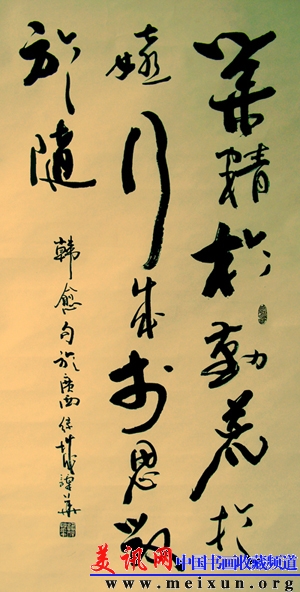 業精於勤荒於
嬉行成於思毀
於隨
韓愈句於廣西
美讯网 中国书画收藏频道
www.meixun.org